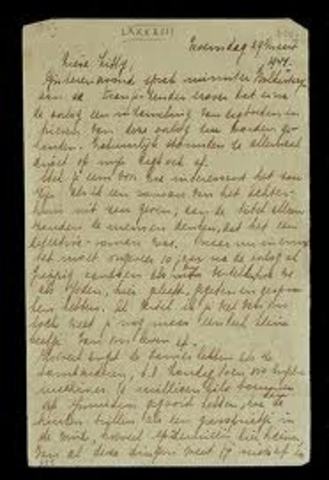 LXXXIII
Woensdag 29 Maart
Lieve Kitty,
Gisterenavond sprak minister Bolkestein
aan de
de oorlog een inzameling van dagboeken en
brieven van deze oorlog zou worden ge-
houden. Natuurlijk stormden ze allemaal
direct op mijn dagboek af.
Stel je eens voor hoe interessant het zou
zijn als ik een roman van het Achter-
huis uit zou geven; aan de titel alleen
zouden de mensen denken, dat het een
detective-roman was. Maar nu in ernst
het moet ongeveer 10 jaar na de oorlog al
grappig aandoen als
als Joden, hier geleefd, gegeten en gespro-
ken hebben. Al vertel ik je veel van ons
toch weet je nog maar een heel klein
beetje van ons leven af.
Hoeveel angst de dames hebben als ze
bombarderen, b.v. Zondag toen 350
machines ½ millioen kilo bommen
op IJmuiden gegooid hebben, hoe dan de
huizen trillen als een grassprietje in
de wind, hoeveel epidemieën hier heersen.
Van al deze dingen weet jij niets af